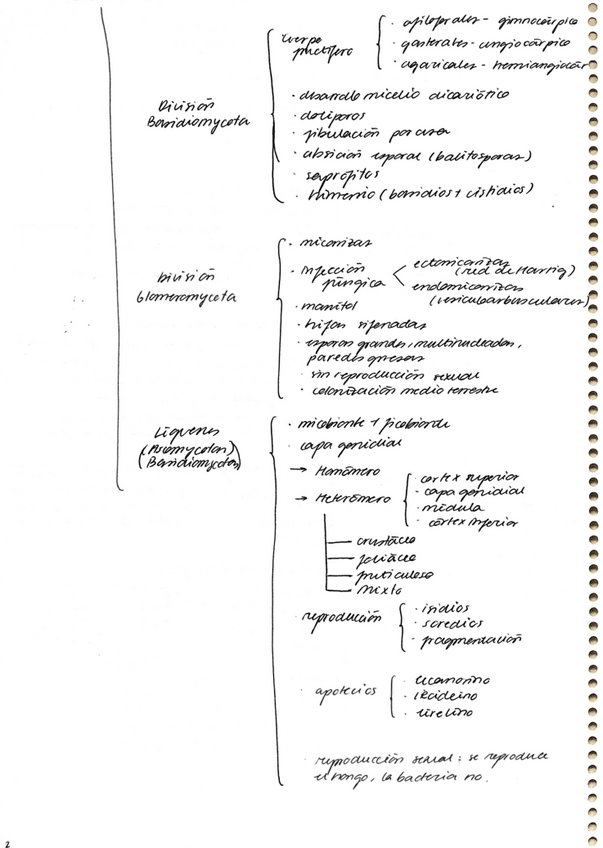 cuerpo fructífero
· afiloporales - gimnocárpico
· gasterales - angiocárpico
· agaricales - hemiangiocár
División
Basidiomycota
· desarrollo micelio dicariótico
· doliporos
· fibulación por asa
· absición esporal (balitosporas)
· saprófitos
· Himenio (basidios + cistidios)
División
Glomeromycota
· micorrizas
· infección fúngica
ectomicorrizas
(red de Hartig)
endomicorrizas
(vesiculoarbusculares)
· manitol
· hifas sifonadas
· esporas grandes, multinucleadas,
paredes gruesas
· sin reproducción sexual
· colonización medio terrestre
Líquenes
(Ascomycotas)
(Basidiomycotas)
· micobionte + ficobionte
· capa gonidial
→ Homómero
→ Heterómero
· cortex superior
· capa gonidial
· médula
· córtex inferior
crustáceo
foliáceo
fruticuloso
mixto
· reproducción
· isidios
· soredios
· fragmentación
· apotecios
· lecanorino
· lecideino
· lirelino
· reproducción sexual: se reproduce
el hongo, la bacteria no.
2